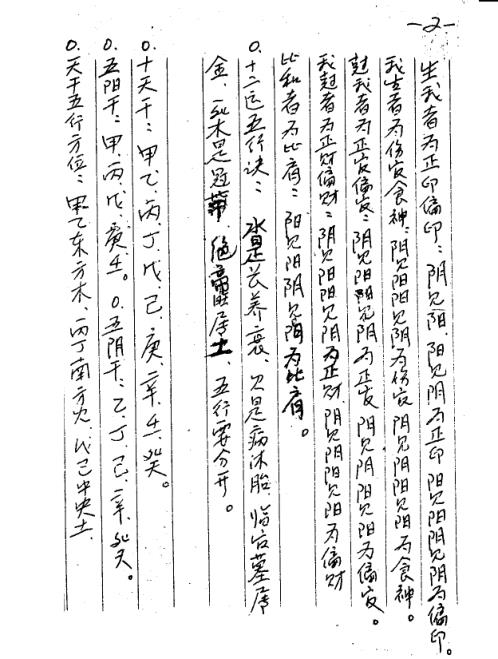 -2-
生我者为正印偏印：阴见阳、阳见阴为正印 阳见阳阴见阴为偏印。
我生者为伤官食神：阴见阳阳见阴为伤官 阴见阴阳见阳为食神。
尅我者为正官偏官：阴见阳阳见阴为正官 阴见阴阳见阳为偏官。
我尅者为正财偏财：阴见阳阳见阴为正财 阴见阴阳见阳为偏财
比和者为比肩：阳见阳阴见阴为比肩。
0.十二运五行诀：水是长养衰、火是病沐胎、临官墓库
金、 木是冠带、绝 居土、五行要分开。
0.十天干：甲、乙、丙、丁、戊、己、庚、辛、壬、癸。
0.五阳干：甲、丙、戊、庚、壬。0.五阴干：乙、丁、己、辛、癸。
0.天干五行方位：甲乙东方木、丙丁南方火、戊己中央土、